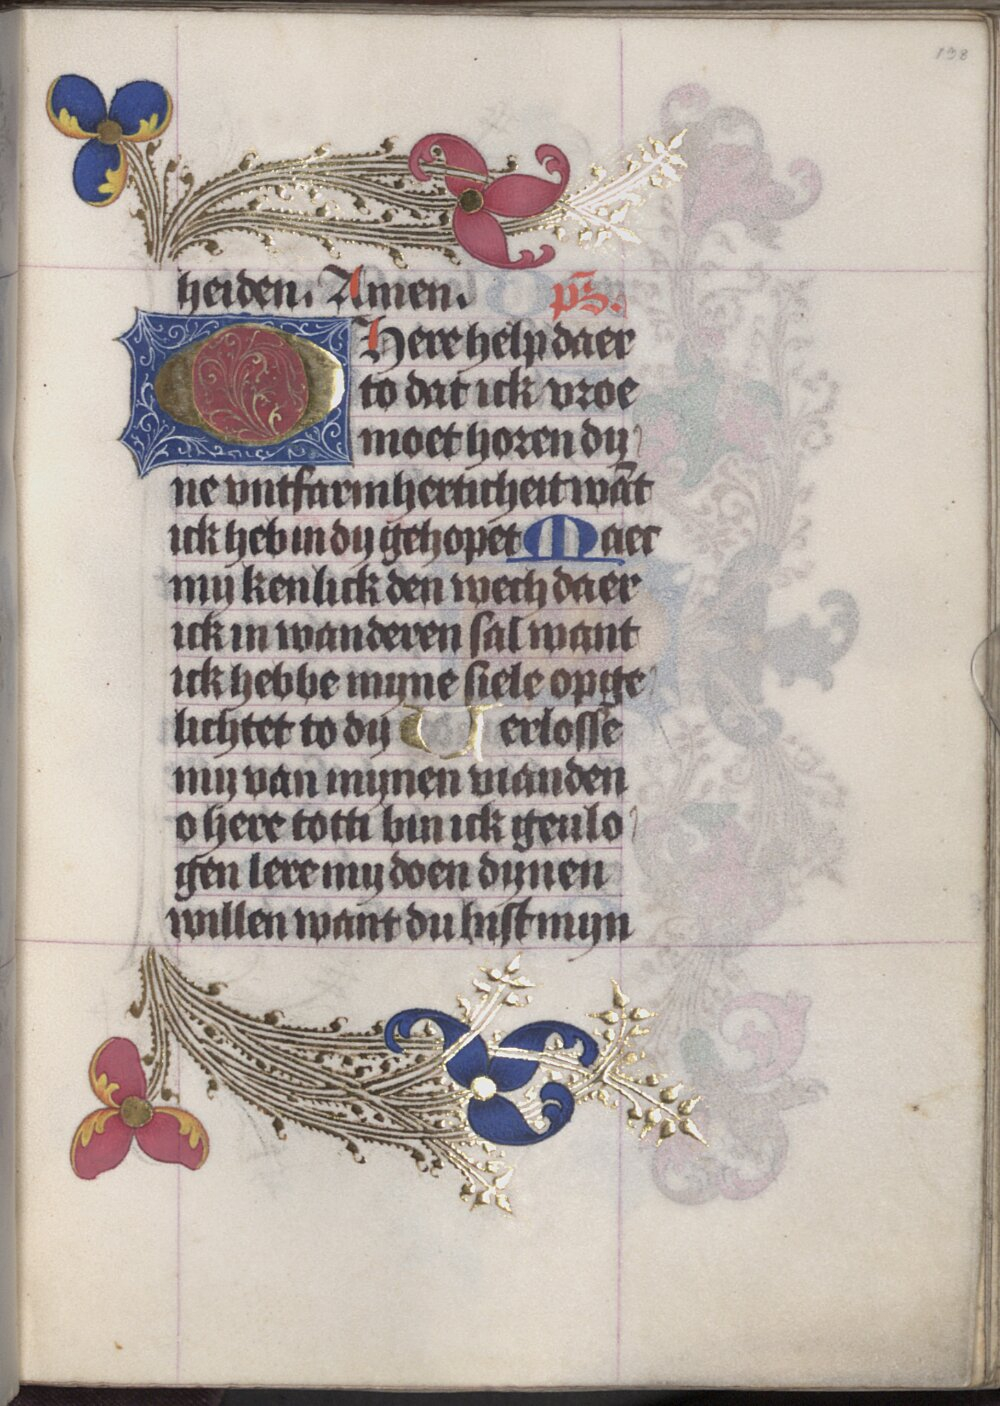 138
heiden. Amen. ps̄.
O Here help daer
to dat ick vroe
moet horen dy
ne vntfarmherticheit wāt
ick heb in dy gehopet Maec
my kenlick den wech daer
ick in wanderen sal want
ick hebbe myne siele opge
lichtet to dy Verlosse
my van mynen vianden
o here totti bin ick gevlo
gen lere my doen dynen
willen want du bist myn